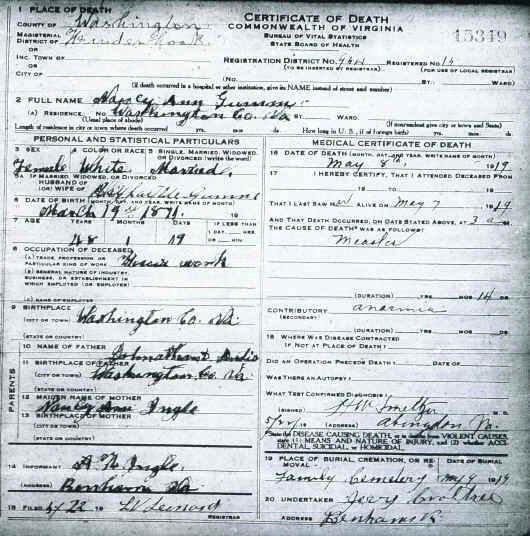 1 PLACE OF DEATH
COUNTY OF Washington
MAGISTERIAL DISTRICT OF
OR
INC. TOWN OF
OR
CITY OF
CERTIFICATE OF DEATH
COMMONWEALTH OF VIRGINIA
BUREAU OF VITAL STATISTICS
STATE BOARD OF HEALTH
45349
REGISTRATION DISTRICT NO. REGISTERED NO. 14
(TO BE INSERTED BY REGISTRAR) (FOR USE OF LOCAL REGISTRAR)
(If death occurred in a hospital or other institution, give its NAME instead of street and number)
NO. ST. WARD
2 FULL NAME Nancy Ann
(A) RESIDENCE. NO. Washington Co. Va ST. WARD.
(Usual place of abode) (If nonresident give city or town and State)
Length of residence in city or town where death occurred yrs. mos. ds. How long in U. S., if of foreign birth? yrs. mos. ds.
PERSONAL AND STATISTICAL PARTICULARS
3 SEX 4 COLOR OR RACE 5 SINGLE, MARRIED, WIDOWED, OR DIVORCED (write the word)
Female White Married
5A IF MARRIED, WIDOWED, OR DIVORCED
HUSBAND OF
(OR) WIFE OF
6 DATE OF BIRTH (MONTH, DAY, AND YEAR, WRITE NAME OF MONTH)
March 19th 1871 19
7 AGE YEARS MONTHS DAYS IF LESS THAN 1 DAY, HRS. OR MIN.
48 1 19
8 OCCUPATION OF DECEASED
(A) TRADE, PROFESSION, OR PARTICULAR KIND OF WORK House work
(B) GENERAL NATURE OF INDUSTRY, BUSINESS, OR ESTABLISHMENT IN WHICH EMPLOYED (OR EMPLOYER)
(C) NAME OF EMPLOYER
9 BIRTHPLACE Washington Co. Va.
(CITY OR TOWN)
(STATE OR COUNTRY)
PARENTS
10 NAME OF FATHER
11 BIRTHPLACE OF FATHER
(CITY OR TOWN) Washington Co. Va.
(STATE OR COUNTRY)
12 MAIDEN NAME OF MOTHER
Nancy Ann Ingle
13 BIRTHPLACE OF MOTHER
(CITY OR TOWN)
(STATE OR COUNTRY)
14 INFORMANT Ingle
(ADDRESS) Benhams Va
15 FILED 22 19 Leonard
REGISTRAR
MEDICAL CERTIFICATE OF DEATH
16 DATE OF DEATH (MONTH, DAY, AND YEAR, WRITE NAME OF MONTH)
May 8th, 1919
17 I HEREBY CERTIFY, THAT I ATTENDED DECEASED FROM
19 TO 19
THAT I LAST SAW HER ALIVE ON May 7 1919
AND THAT DEATH OCCURRED, ON DATE STATED ABOVE, AT 3 a M.
THE CAUSE OF DEATH WAS AS FOLLOWS:
Measles
(DURATION) YRS. MOS. 14 DS.
CONTRIBUTORY anaemia
(SECONDARY)
(DURATION) YRS. MOS. DS.
18 WHERE WAS DISEASE CONTRACTED
IF NOT AT PLACE OF DEATH?
DID AN OPERATION PRECEDE DEATH? DATE OF
WAS THERE AN AUTOPSY?
WHAT TEST CONFIRMED DIAGNOSIS?
(SIGNED) Smeltzer M. D.
19 (ADDRESS) Abingdon Va.
State the DISEASE CAUSING DEATH, or in deaths from VIOLENT CAUSES, state (1) MEANS AND NATURE OF INJURY, and (2) whether ACCIDENTAL, SUICIDAL, or HOMICIDAL.
19 PLACE OF BURIAL, CREMATION, OR REMOVAL DATE OF BURIAL
Family Cemetery May 9 1919
20 UNDERTAKER Crabtree
ADDRESS Benhams Va